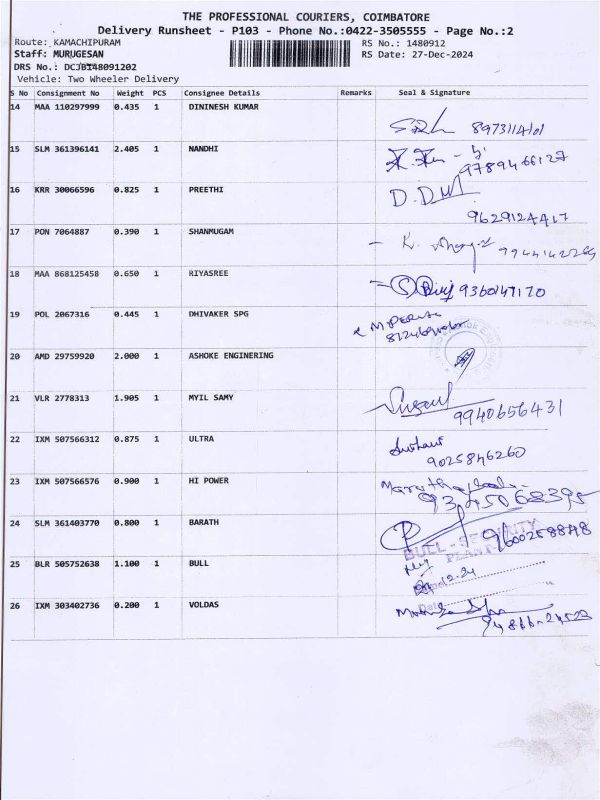 THE PROFESSIONAL COURIERS, COIMBATORE
Delivery Runsheet - P103 - Phone No.:0422-3505555 - Page No.:2
Route: KAMACHIPURAM RS No.: 1480912
Staff: MURUGESAN RS Date: 27-Dec-2024
DRS No.: DCJBI48091202
Vehicle: Two Wheeler Delivery
S No Consignment No Weight PCS Consignee Details Remarks Seal & Signature
14 MAA 110297999 0.435 1 DININESH KUMAR
8973114101
15 SLM 361396141 2.405 1 NANDHI
9789466127
16 KRR 30066596 0.825 1 PREETHI
9629124417
17 PON 7064887 0.390 1 SHANMUGAM
18 MAA 868125458 0.650 1 RIYASREE
9360147170
19 POL 2067316 0.445 1 DHIVAKER SPG
20 AMD 29759920 2.000 1 ASHOKE ENGINERING
21 VLR 2778313 1.905 1 MYIL SAMY
9940656431
22 IXM 507566312 0.875 1 ULTRA
9025846260
23 IXM 507566576 0.900 1 HI POWER
24 SLM 361403770 0.800 1 BARATH
9600258848
BULL - SECURITY
PLANT
25 BLR 505752638 1.100 1 BULL
26 IXM 303402736 0.200 1 VOLDAS